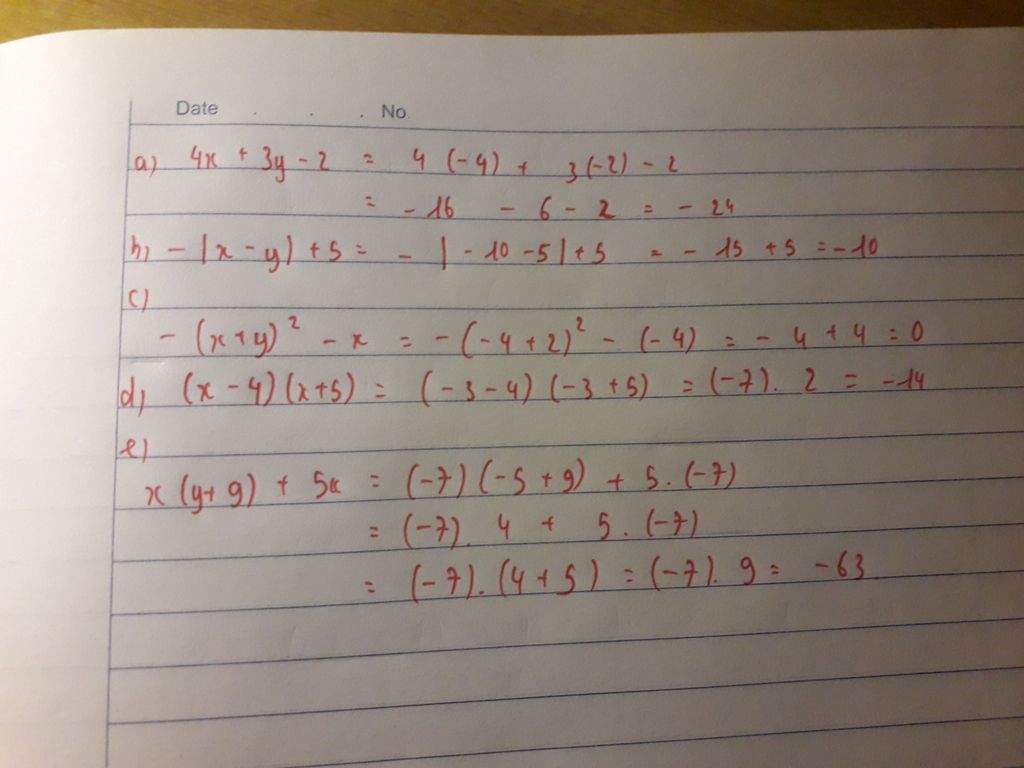 Date . . . No.
a) 4x + 3y - 2 = 4 (-4) + 3(-2) - 2
= -16 - 6 - 2 = - 24
b) - |x - y| + 5 = - | - 10 - 5| + 5 = - 15 + 5 = -10
c)
- (x+y)² - x = -(-4+2)² - (-4) = - 4 + 4 = 0
d) (x - 4)(x+5) = (-3-4)(-3+5) = (-7). 2 = -14
e)
x (y+9) + 5x = (-7)(-5+9) + 5.(-7)
= (-7). 4 + 5.(-7)
= (-7).(4+5) = (-7). 9 = -63.